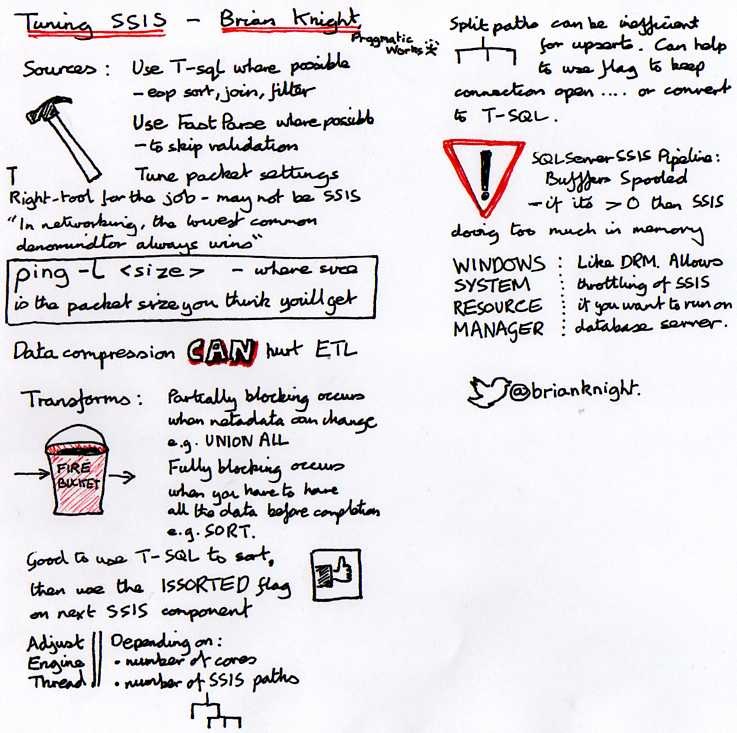 Tuning SSIS - Brian Knight,
Pragmatic
Works
Sources: Use T-sql where possible
- esp sort, join, filter
Use Fast Parse where possible
- to skip validation
T Tune packet settings
Right-tool for the job - may not be SSIS
"In networking, the lowest common
denominator always wins"
ping -l <size> - where size
is the packet size you think you'll get
Data compression CAN hurt ETL
Transforms: Partially blocking occurs
when metadata can change
e.g. UNION ALL
FIRE
BUCKET
Fully blocking occurs
when you have to have
all the data before completion
e.g. SORT.
Good to use T-SQL to sort,
then use the ISSORTED flag
on next SSIS component
Adjust Depending on:
Engine • number of cores
Thread • number of SSIS paths
Split paths can be inefficient
for upserts. Can help
to use flag to keep
connection open .... or convert
to T-SQL.
!
SQL Server SSIS Pipeline:
Buffers Spooled
- if its > 0 then SSIS
doing too much in memory
WINDOWS : Like DRM. Allows
SYSTEM : throttling of SSIS
RESOURCE : if you want to run on
MANAGER : database server.
@brianknight.